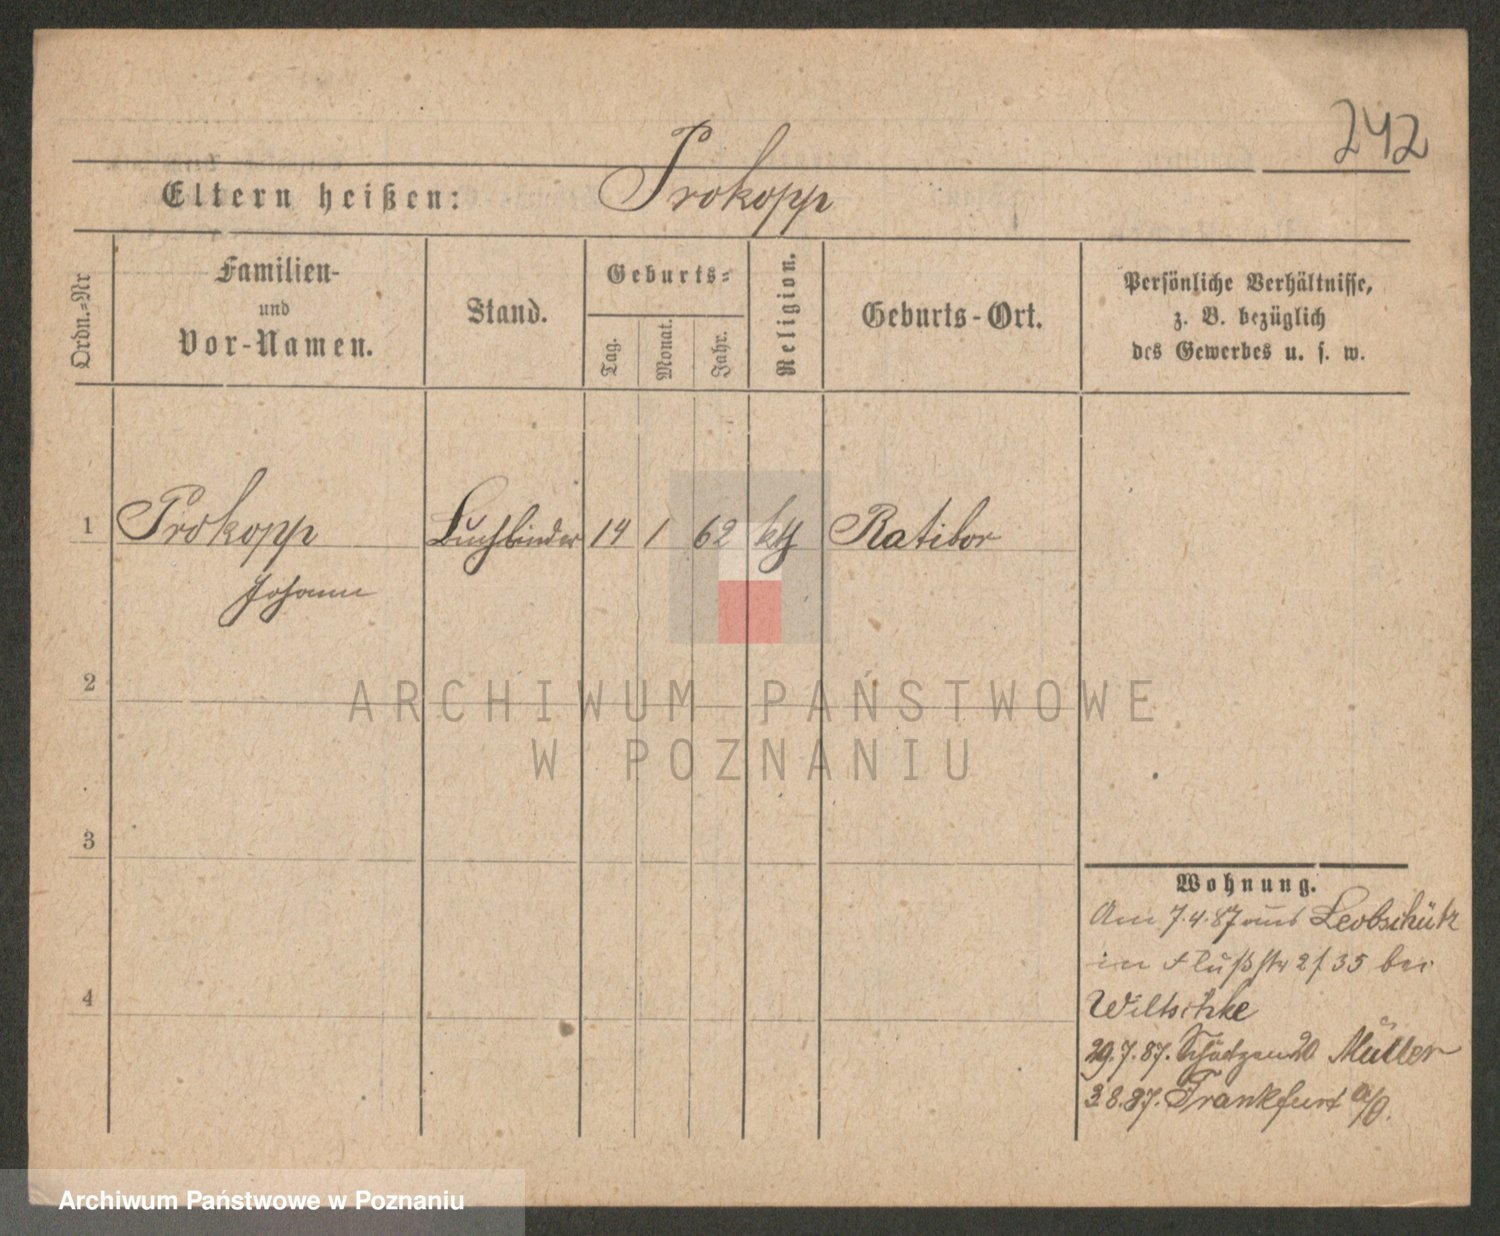 242
Eltern heißen: Prokopp
Ordn.-Nr
Familien-
und
Vor-Namen.
Stand.
Geburts-
Tag.
Monat.
Jahr.
Religion.
Geburts-Ort.
Persönliche Verhältnisse,
z. B. bezüglich
des Gewerbes u. s. w.
1 Prokopp Buchbinder 14 1 62 kth Ratibor
Johann
2
ARCHIWUM PAŃSTWOWE
W POZNANIU
3
Wohnung.
Am 7.4.87 aus Leobschütz
in Flußstr 35 bei
Wiltschke
4
29.7.87. 20 Müller
3.8.87. Frankfurt a/O.
Archiwum Państwowe w Poznaniu